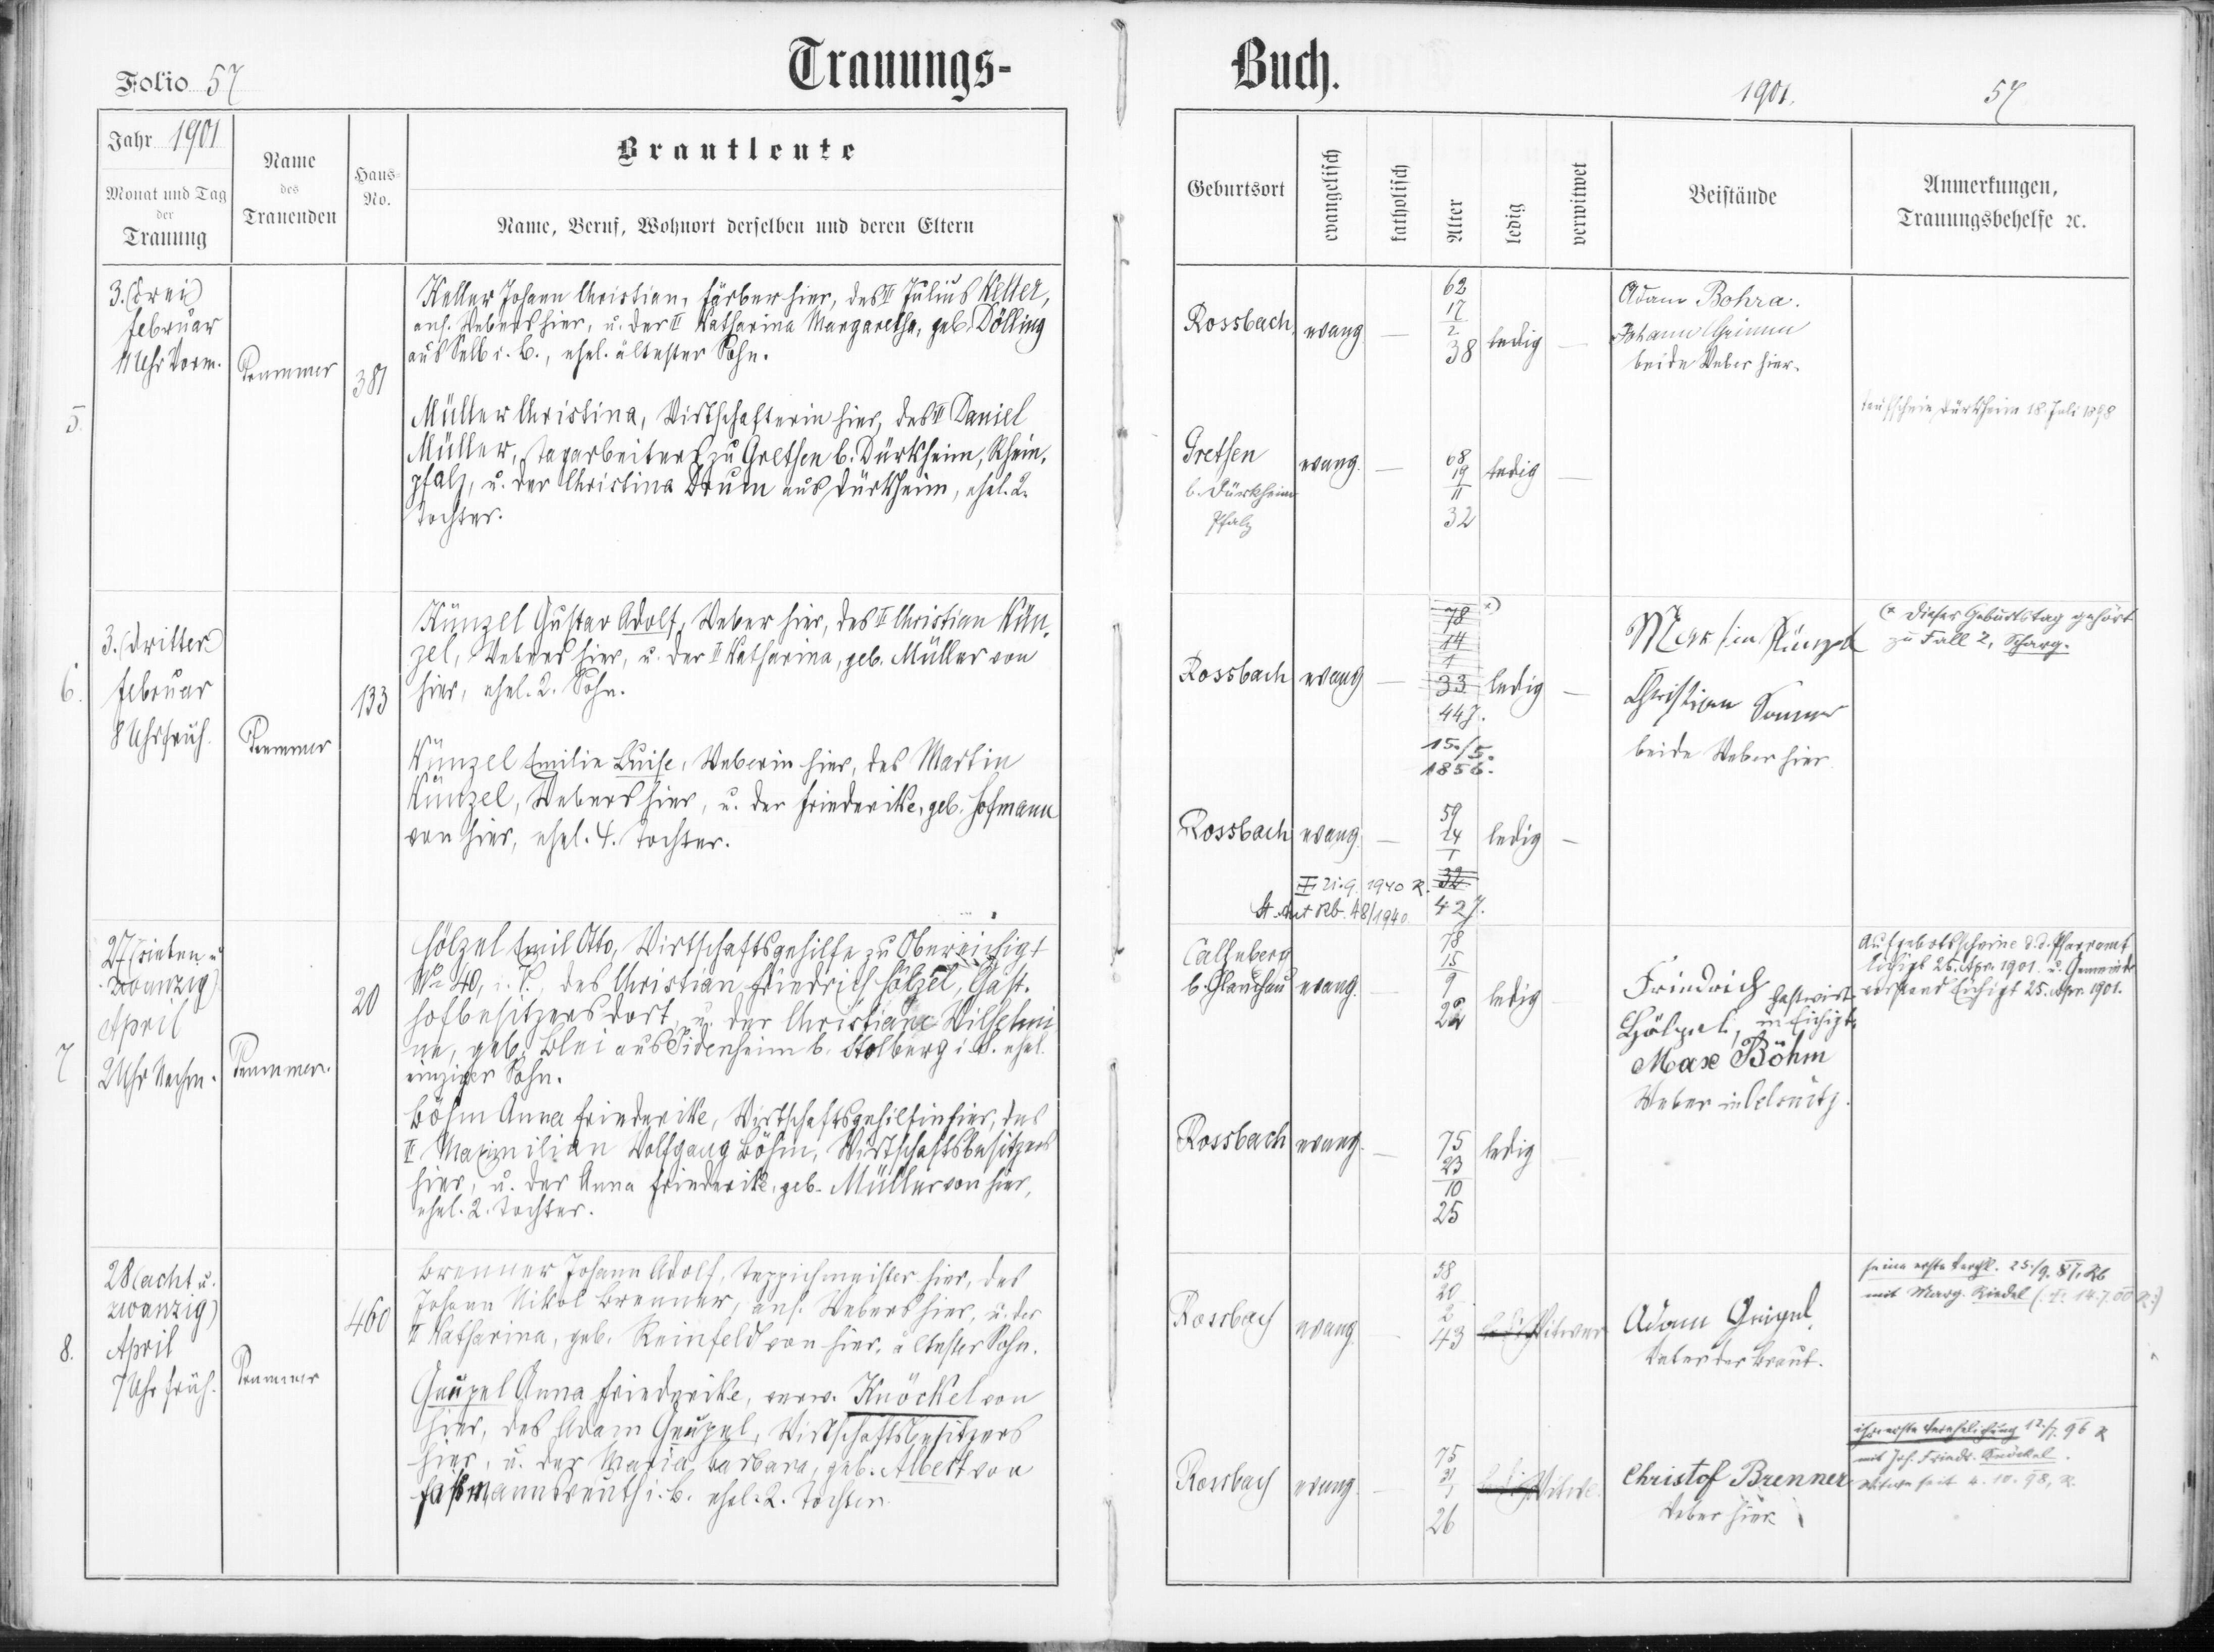 Trauungs-
Folio 57
Jahr 1901
Monat und Tag
der
Trauung
Name
des
Trauenden
Haus-
No.
Brautleute
Name, Beruf, Wohnort derselben und deren Eltern
5.
3. (drei)
Februar
11 Uhr Vorm.
381
Keller Johann Christian, Färber hier, des ## Julius Keller,
ans. Webers hier, u. der ## Katharina Margaretha, geb. Dölling
aus Selb i. B., ehel. ältester Sohn.
Müller Christina, Wirtschafterin hier, des ## Daniel
Müller, Tagarbeiters zu Grethen b. Dürkheim, Rhein-
pfalz, u. der Christina Drum aus Dürkheim, ehel. 2.
Tochter.
6.
3. (dritter)
Februar
8 Uhr früh.
133
Künzel Gustav Adolf, Weber hier, des ## Christian Kün-
zel, Webers hier, u. der ## Katharina, geb. Müller von
hier, ehel. 2. Sohn.
Künzel Emilie Luise, Weberin hier, des Martin
Künzel, Webers hier, u. der Friederike, geb. Hofmann
von hier, ehel. 4. Tochter.
7
27 (sieben u.
zwanzig)
April
2 Uhr Nachm.
20
Hölzel Emil Otto, Wirtschaftsgehilfe zu Obereichigt
No 40, i. S., des Christian Friedrich Hölzel, Gast-
hofbesitzers dort, u. der Christiane Wilhelmi
ne, geb. Blei aus b. Stolberg i. S. ehel.
einziger Sohn.
Böhm Anna Friederike, Wirtschaftsgehilfin hier, des
## Maximilian Wolfgang Böhm, Wirtschaftsbesitzers
hier, u. der Anna Friederike, geb. Müller von hier,
ehel. 2. Tochter.
8.
28 (acht u.
zwanzig)
April
7 Uhr früh.
460
Brenner Johann Adolf, Teppichmeister hier, des
Johann Nikol Brenner, ans. Webers hier, u. der
## Katharina, geb. Reinfeld von hier, ältester Sohn.
Geupel Anna Friederike, verw. Knöckel von
hier, des Adam Geupel, Wirtschaftsbesitzers
hier, u. der Maria Barbara, geb. Albert von
Faßmannsreuth i. B. ehel. 2. Tochter.
Buch.
1901.
57
Geburtsort
evangelisch
katholisch
Alter
ledig
verwitwet
Beistände
Anmerkungen,
Trauungsbehelfe ꝛc.
Rossbach, evang — 62 17 2 38 ledig —
Adam Bohra.
Johann Grimm
beide Weber hier.
Taufschein Dürkheim 18. Juli 1898
Grethen
b. Dürkheim
Pfalz
evang. — 68 19 11 32 ledig —
Rossbach evang — 78 14 1 33 ledig —
44 J.
15./5.
1856.
Martin Künzel
Christian
beide Weber hier
(x Dieser Geburtstag gehört
zu Fall 2,
Rossbach evang. — 59 24 1 ledig —
21.9. 1940 R.
48/1940. 42 J.
Callnberg
b. Glauchau evang. 78 15 9 22 ledig
Friedrich
Hölzel, Gastwirt
in Eichigt.
Max Böhm
Weber in Oelsnitz.
Aufgebotsscheine d. d. Pfarramt
Eichigt 25. Apr. 1901. u. Gemeinde-
vorstand Eichigt 25. Apr. 1901.
Rossbach evang. — 75 23 10 25 ledig
Rossbach evang. 58 20 2 43 Witwer
Adam Geipel,
Vater der Braut.
seine erste Verehl. 25./9. 87, Rb
mit Marg. Riedel 14.7.00 R.)
Rossbach evang. 75 31 1 26 Witwe.
Christof Brenner
Weber hier
ihre erste Verehelichung 12./7. 96 R
mit Joh. Friedr. Knöckel.
Witwe seit 4. 10. 98, R.